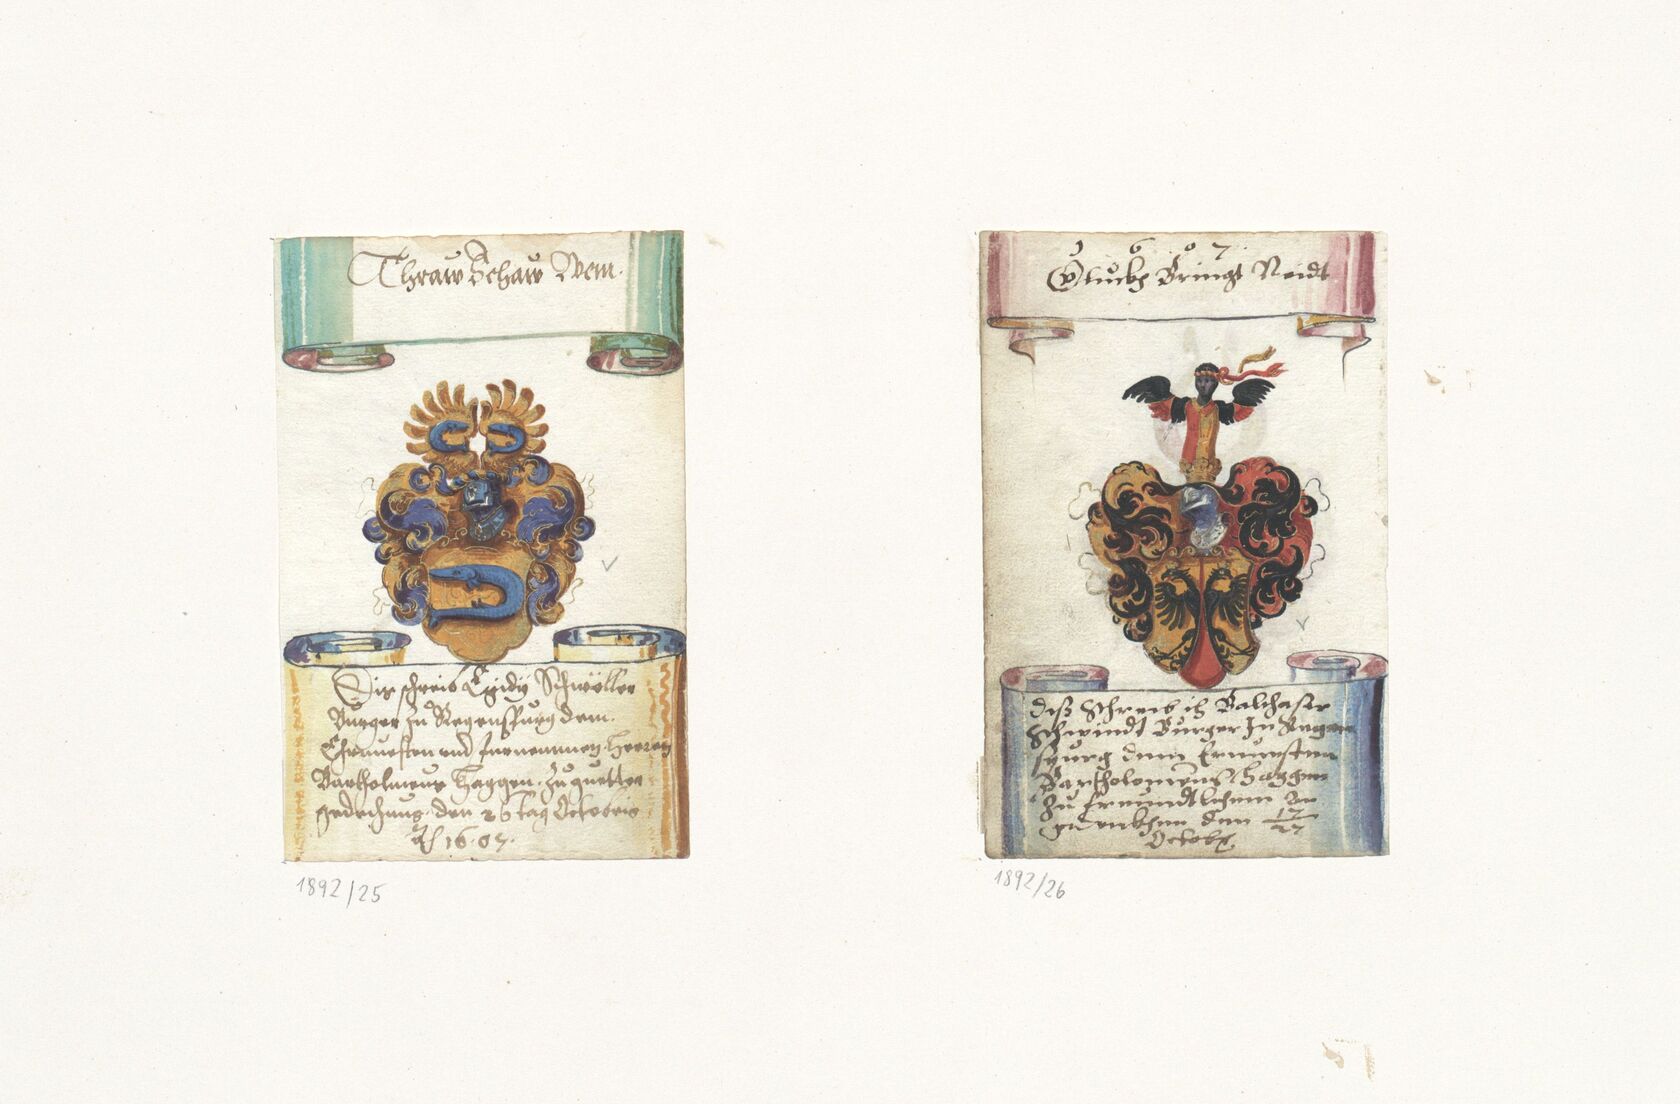 Thraw Schaw Wem.
Dis schreib Egidy Schwöller
Burger zu Regenspurg dem
Ehrnuesten und furnemmen Herren
Bartholmeus Haggen zu guetter
gedechnus den 26 tag Octobris
1607.
1892/25
1607
Gluckh Bringt Neidt
diß Schreib ich Balthasar
Schwindt Burger In Regen
spurg dem Ernuesten
Bartholomeus Haggen
zu freundtlichem
gedenkhen den 17/27
Octob
1892/26